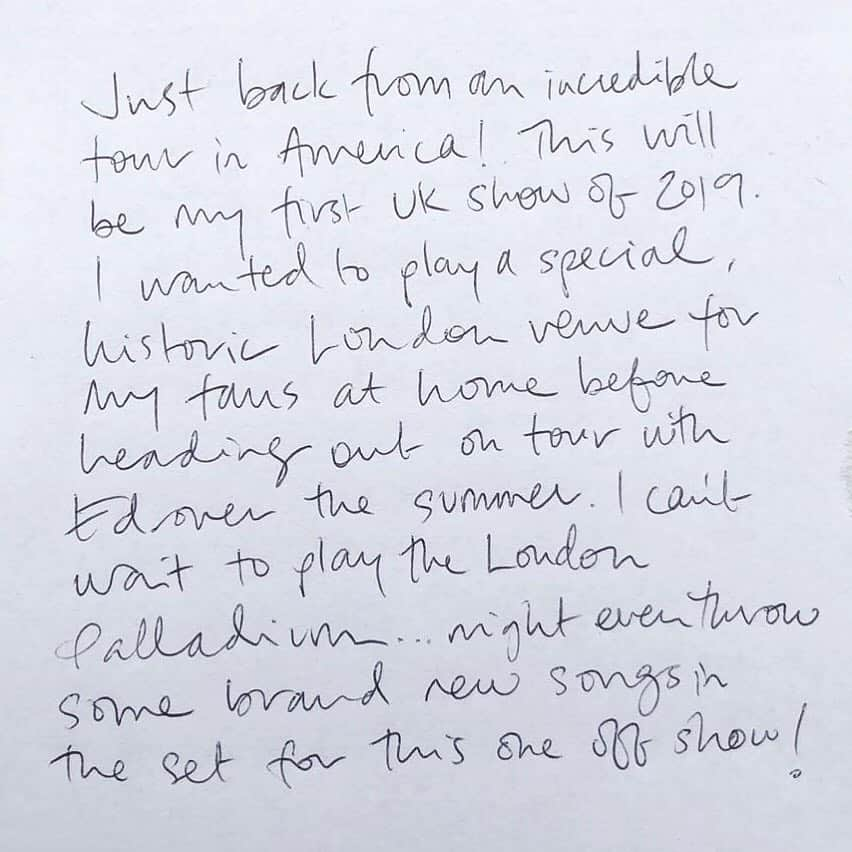 Just back from an incredible
tour in America! This will
be my first UK show of 2019.
I wanted to play a special,
historic London venue for
my fans at home before
heading out on tour with
Ed over the summer. I can't
wait to play the London
Palladium... might even throw
some brand new songs in
the set for this one off show!